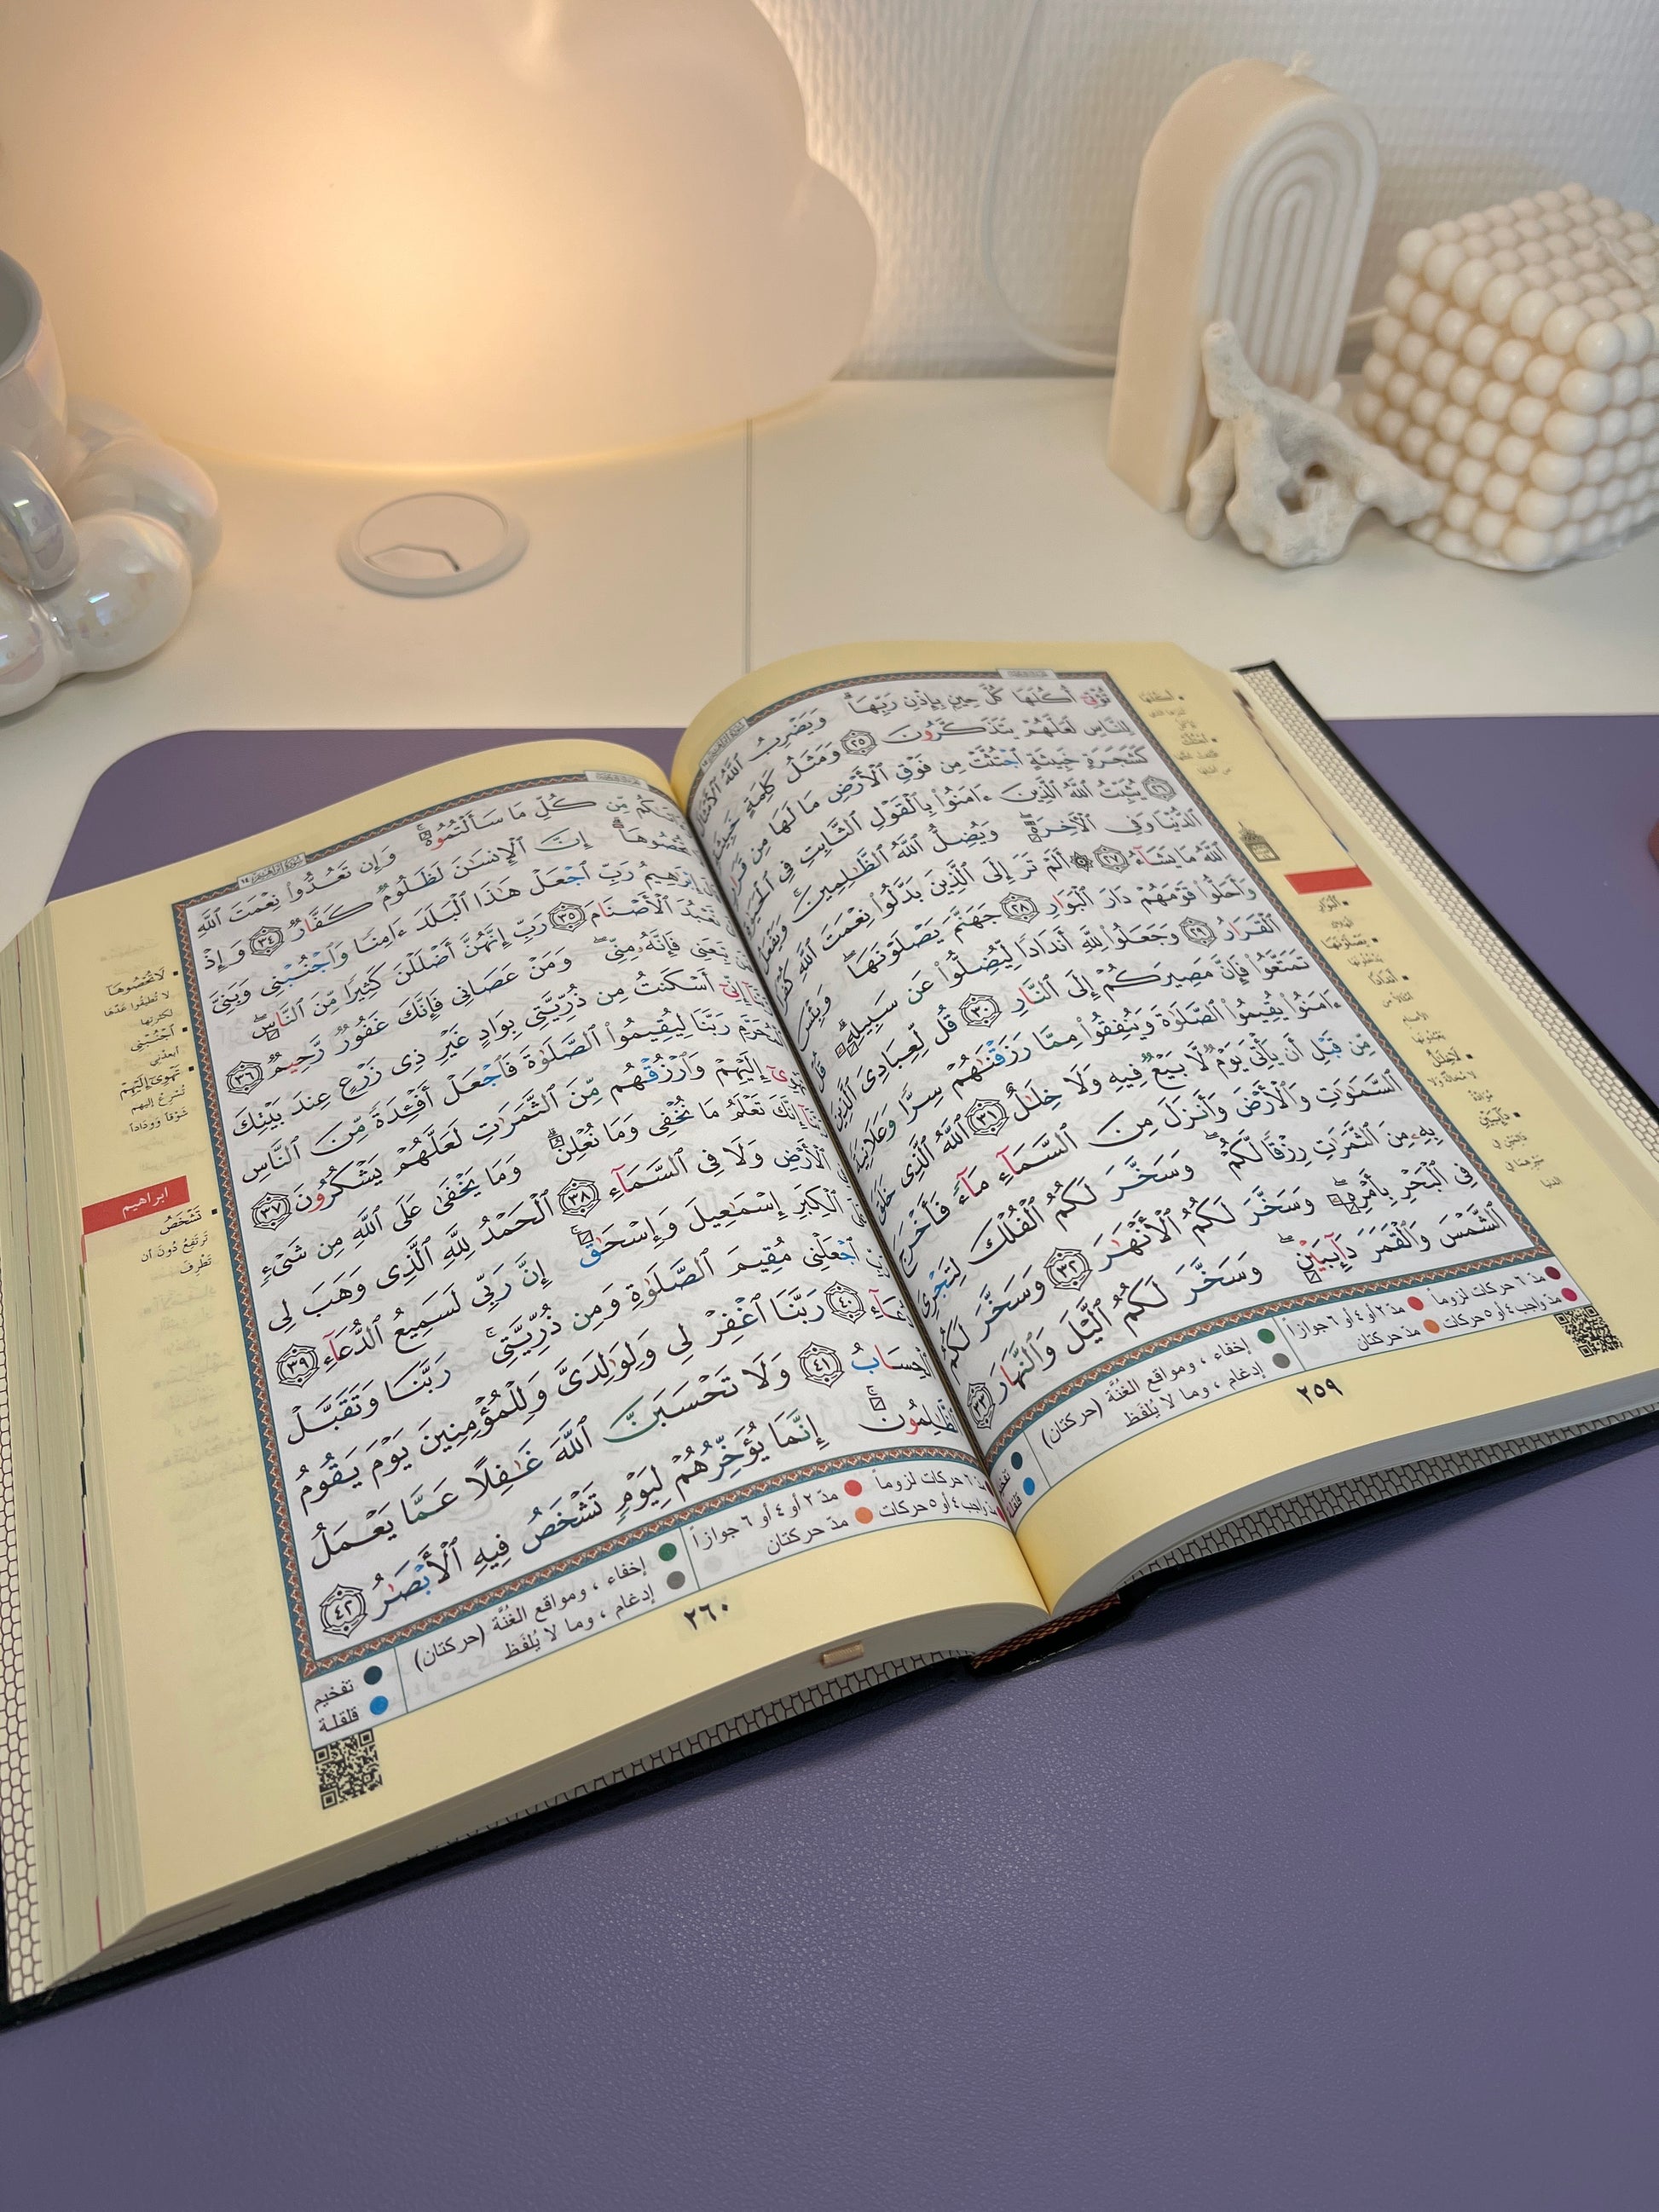 تُؤْتِىٓ أُكُلَهَا كُلَّ حِينٍۭ بِإِذْنِ رَبِّهَا ۗ وَيَضْرِبُ ٱللَّهُ ٱلْأَمْثَالَ
لِلنَّاسِ لَعَلَّهُمْ يَتَذَكَّرُونَ ٢٥ وَمَثَلُ كَلِمَةٍ خَبِيثَةٍ
كَشَجَرَةٍ خَبِيثَةٍ ٱجْتُثَّتْ مِن فَوْقِ ٱلْأَرْضِ مَا لَهَا مِن قَرَارٍ
٢٦ يُثَبِّتُ ٱللَّهُ ٱلَّذِينَ ءَامَنُوا۟ بِٱلْقَوْلِ ٱلثَّابِتِ فِى ٱلْحَيَوٰةِ
ٱلدُّنْيَا وَفِى ٱلْـَٔاخِرَةِ ۖ وَيُضِلُّ ٱللَّهُ ٱلظَّـٰلِمِينَ ۚ وَيَفْعَلُ
ٱللَّهُ مَا يَشَآءُ ٢٧ ۞ أَلَمْ تَرَ إِلَى ٱلَّذِينَ بَدَّلُوا۟ نِعْمَتَ ٱللَّهِ كُفْرًا
وَأَحَلُّوا۟ قَوْمَهُمْ دَارَ ٱلْبَوَارِ ٢٨ جَهَنَّمَ يَصْلَوْنَهَا ۖ وَبِئْسَ
ٱلْقَرَارُ ٢٩ وَجَعَلُوا۟ لِلَّهِ أَندَادًا لِّيُضِلُّوا۟ عَن سَبِيلِهِۦ ۗ قُلْ
تَمَتَّعُوا۟ فَإِنَّ مَصِيرَكُمْ إِلَى ٱلنَّارِ ٣٠ قُل لِّعِبَادِىَ ٱلَّذِينَ
ءَامَنُوا۟ يُقِيمُوا۟ ٱلصَّلَوٰةَ وَيُنفِقُوا۟ مِمَّا رَزَقْنَـٰهُمْ سِرًّا وَعَلَانِيَةً
مِّن قَبْلِ أَن يَأْتِىَ يَوْمٌ لَّا بَيْعٌ فِيهِ وَلَا خِلَـٰلٌ ٣١ ٱللَّهُ ٱلَّذِى خَلَقَ
ٱلسَّمَـٰوَٰتِ وَٱلْأَرْضَ وَأَنزَلَ مِنَ ٱلسَّمَآءِ مَآءً فَأَخْرَجَ
بِهِۦ مِنَ ٱلثَّمَرَٰتِ رِزْقًا لَّكُمْ ۖ وَسَخَّرَ لَكُمُ ٱلْفُلْكَ لِتَجْرِىَ
فِى ٱلْبَحْرِ بِأَمْرِهِۦ ۖ وَسَخَّرَ لَكُمُ ٱلْأَنْهَـٰرَ ٣٢ وَسَخَّرَ لَكُمُ
ٱلشَّمْسَ وَٱلْقَمَرَ دَآئِبَيْنِ ۖ وَسَخَّرَ لَكُمُ ٱلَّيْلَ وَٱلنَّهَارَ ٣٣
مدّ ٦ حركات لزوماً مدّ ٢ أو ٤ أو ٦ جوازاً
مدّ واجب ٤ أو ٥ حركات مدّ حركتان
إخفاء ، ومواقع الغُنَّة (حركتان)
إدغام ، وما لا يُلفَظ
تفخيم
قلقلة
٢٥٩
مِّن كُلِّ مَا سَأَلْتُمُوهُ ۚ وَإِن تَعُدُّوا۟ نِعْمَتَ ٱللَّهِ
تُحْصُوهَآ ۗ إِنَّ ٱلْإِنسَـٰنَ لَظَلُومٌ كَفَّارٌ ٣٤ وَإِذْ
إِبْرَٰهِيمُ رَبِّ ٱجْعَلْ هَـٰذَا ٱلْبَلَدَ ءَامِنًا وَٱجْنُبْنِى وَبَنِىَّ
نَّعْبُدَ ٱلْأَصْنَامَ ٣٥ رَبِّ إِنَّهُنَّ أَضْلَلْنَ كَثِيرًا مِّنَ ٱلنَّاسِ ۖ
تَبِعَنِى فَإِنَّهُۥ مِنِّى ۖ وَمَنْ عَصَانِى فَإِنَّكَ غَفُورٌ رَّحِيمٌ ٣٦
إِنِّىٓ أَسْكَنتُ مِن ذُرِّيَّتِى بِوَادٍ غَيْرِ ذِى زَرْعٍ عِندَ بَيْتِكَ
ٱلْمُحَرَّمِ رَبَّنَا لِيُقِيمُوا۟ ٱلصَّلَوٰةَ فَٱجْعَلْ أَفْـِٔدَةً مِّنَ ٱلنَّاسِ
تَهْوِىٓ إِلَيْهِمْ وَٱرْزُقْهُم مِّنَ ٱلثَّمَرَٰتِ لَعَلَّهُمْ يَشْكُرُونَ ٣٧
إِنَّكَ تَعْلَمُ مَا نُخْفِى وَمَا نُعْلِنُ ۗ وَمَا يَخْفَىٰ عَلَى ٱللَّهِ مِن شَىْءٍ
ٱلْأَرْضِ وَلَا فِى ٱلسَّمَآءِ ٣٨ ٱلْحَمْدُ لِلَّهِ ٱلَّذِى وَهَبَ لِى
ٱلْكِبَرِ إِسْمَـٰعِيلَ وَإِسْحَـٰقَ ۚ إِنَّ رَبِّى لَسَمِيعُ ٱلدُّعَآءِ ٣٩
ٱجْعَلْنِى مُقِيمَ ٱلصَّلَوٰةِ وَمِن ذُرِّيَّتِى ۚ رَبَّنَا وَتَقَبَّلْ
دُعَآءِ ٤٠ رَبَّنَا ٱغْفِرْ لِى وَلِوَٰلِدَىَّ وَلِلْمُؤْمِنِينَ يَوْمَ يَقُومُ
ٱلْحِسَابُ ٤١ وَلَا تَحْسَبَنَّ ٱللَّهَ غَـٰفِلًا عَمَّا يَعْمَلُ
ٱلظَّـٰلِمُونَ ۚ إِنَّمَا يُؤَخِّرُهُمْ لِيَوْمٍ تَشْخَصُ فِيهِ ٱلْأَبْصَـٰرُ ٤٢
لَا تُحْصُوهَآ
لا تُطيقوا عَدَّها
لكثرتها
ٱجْنُبْنِى
أبعدني
تَهْوِىٓ إِلَيْهِمْ
تُسْرِعُ إليهم
شَوْقاً وَوِدَاداً
ابراهيم
تَشْخَصُ
تَرْتَفِعُ دُونَ أن
تَطْرِفَ
مدّ ٦ حركات لزوماً مدّ ٢ أو ٤ أو ٦ جوازاً
مدّ واجب ٤ أو ٥ حركات مدّ حركتان
إخفاء ، ومواقع الغُنَّة (حركتان)
إدغام ، وما لا يُلفَظ
تفخيم
قلقلة
٢٦٠